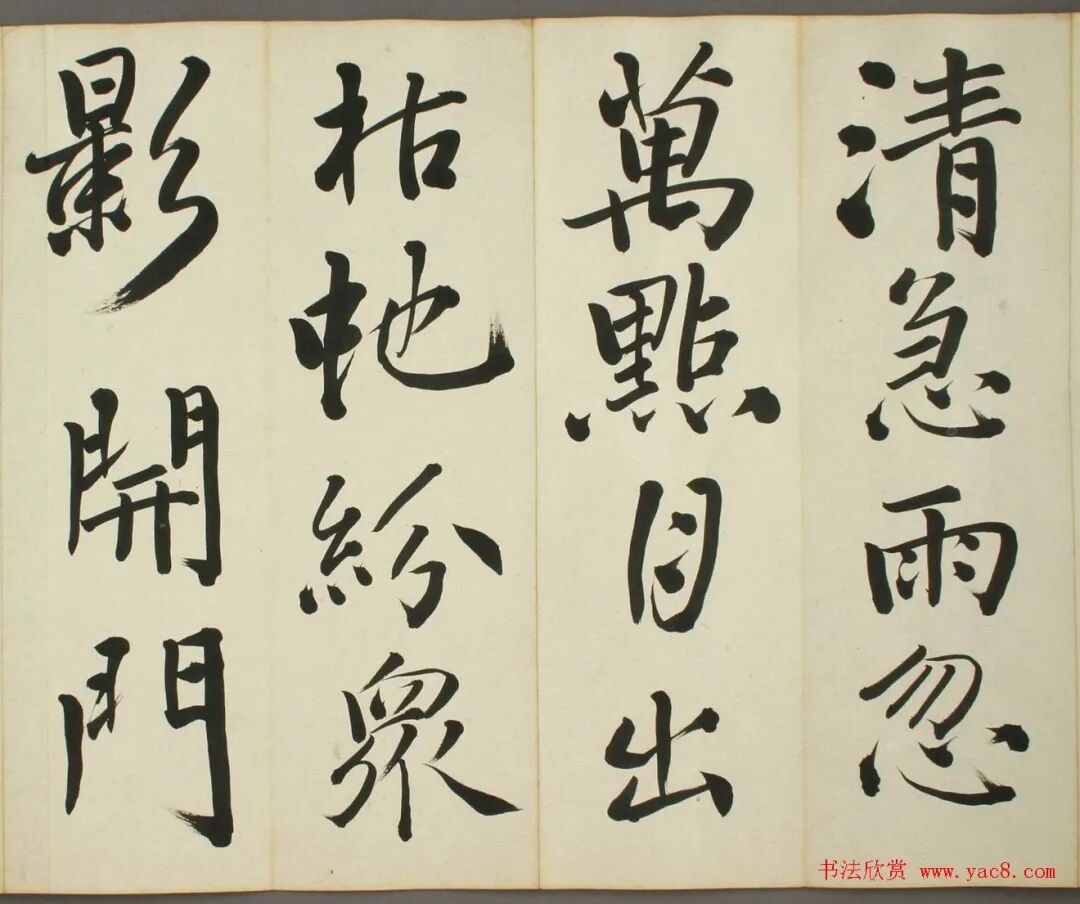 清急雨忽
萬點月出
枯虵紛衆
影開門
书法欣赏 www.yac8.com